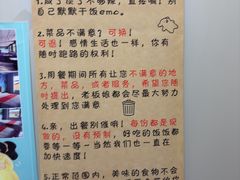 1.咸了淡了不够辣，直接喊！别
自己默默干饭emo。
2.菜品不满意？可换！
可退！感情生活也一样，你有
随时跑路的权利！
3.用餐期间所有让您不满意的地
方，菜品，或者服务，希望您随
时提出，老板娘都会尽最大努力
处理到您满意
4.亲，出餐别催哦！每份都是现
做的，没有预制，好吃的饭饭都
要等一等～当然我们也一直在
加快速度！
5.正常范围内，美味的食物不会